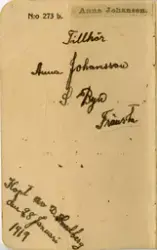 N:o 273 b.
Anna Johansson.
Tillhör
Anna Johansson
S. Byn
Fränsta
Köpt av
den 28 Januari
1919